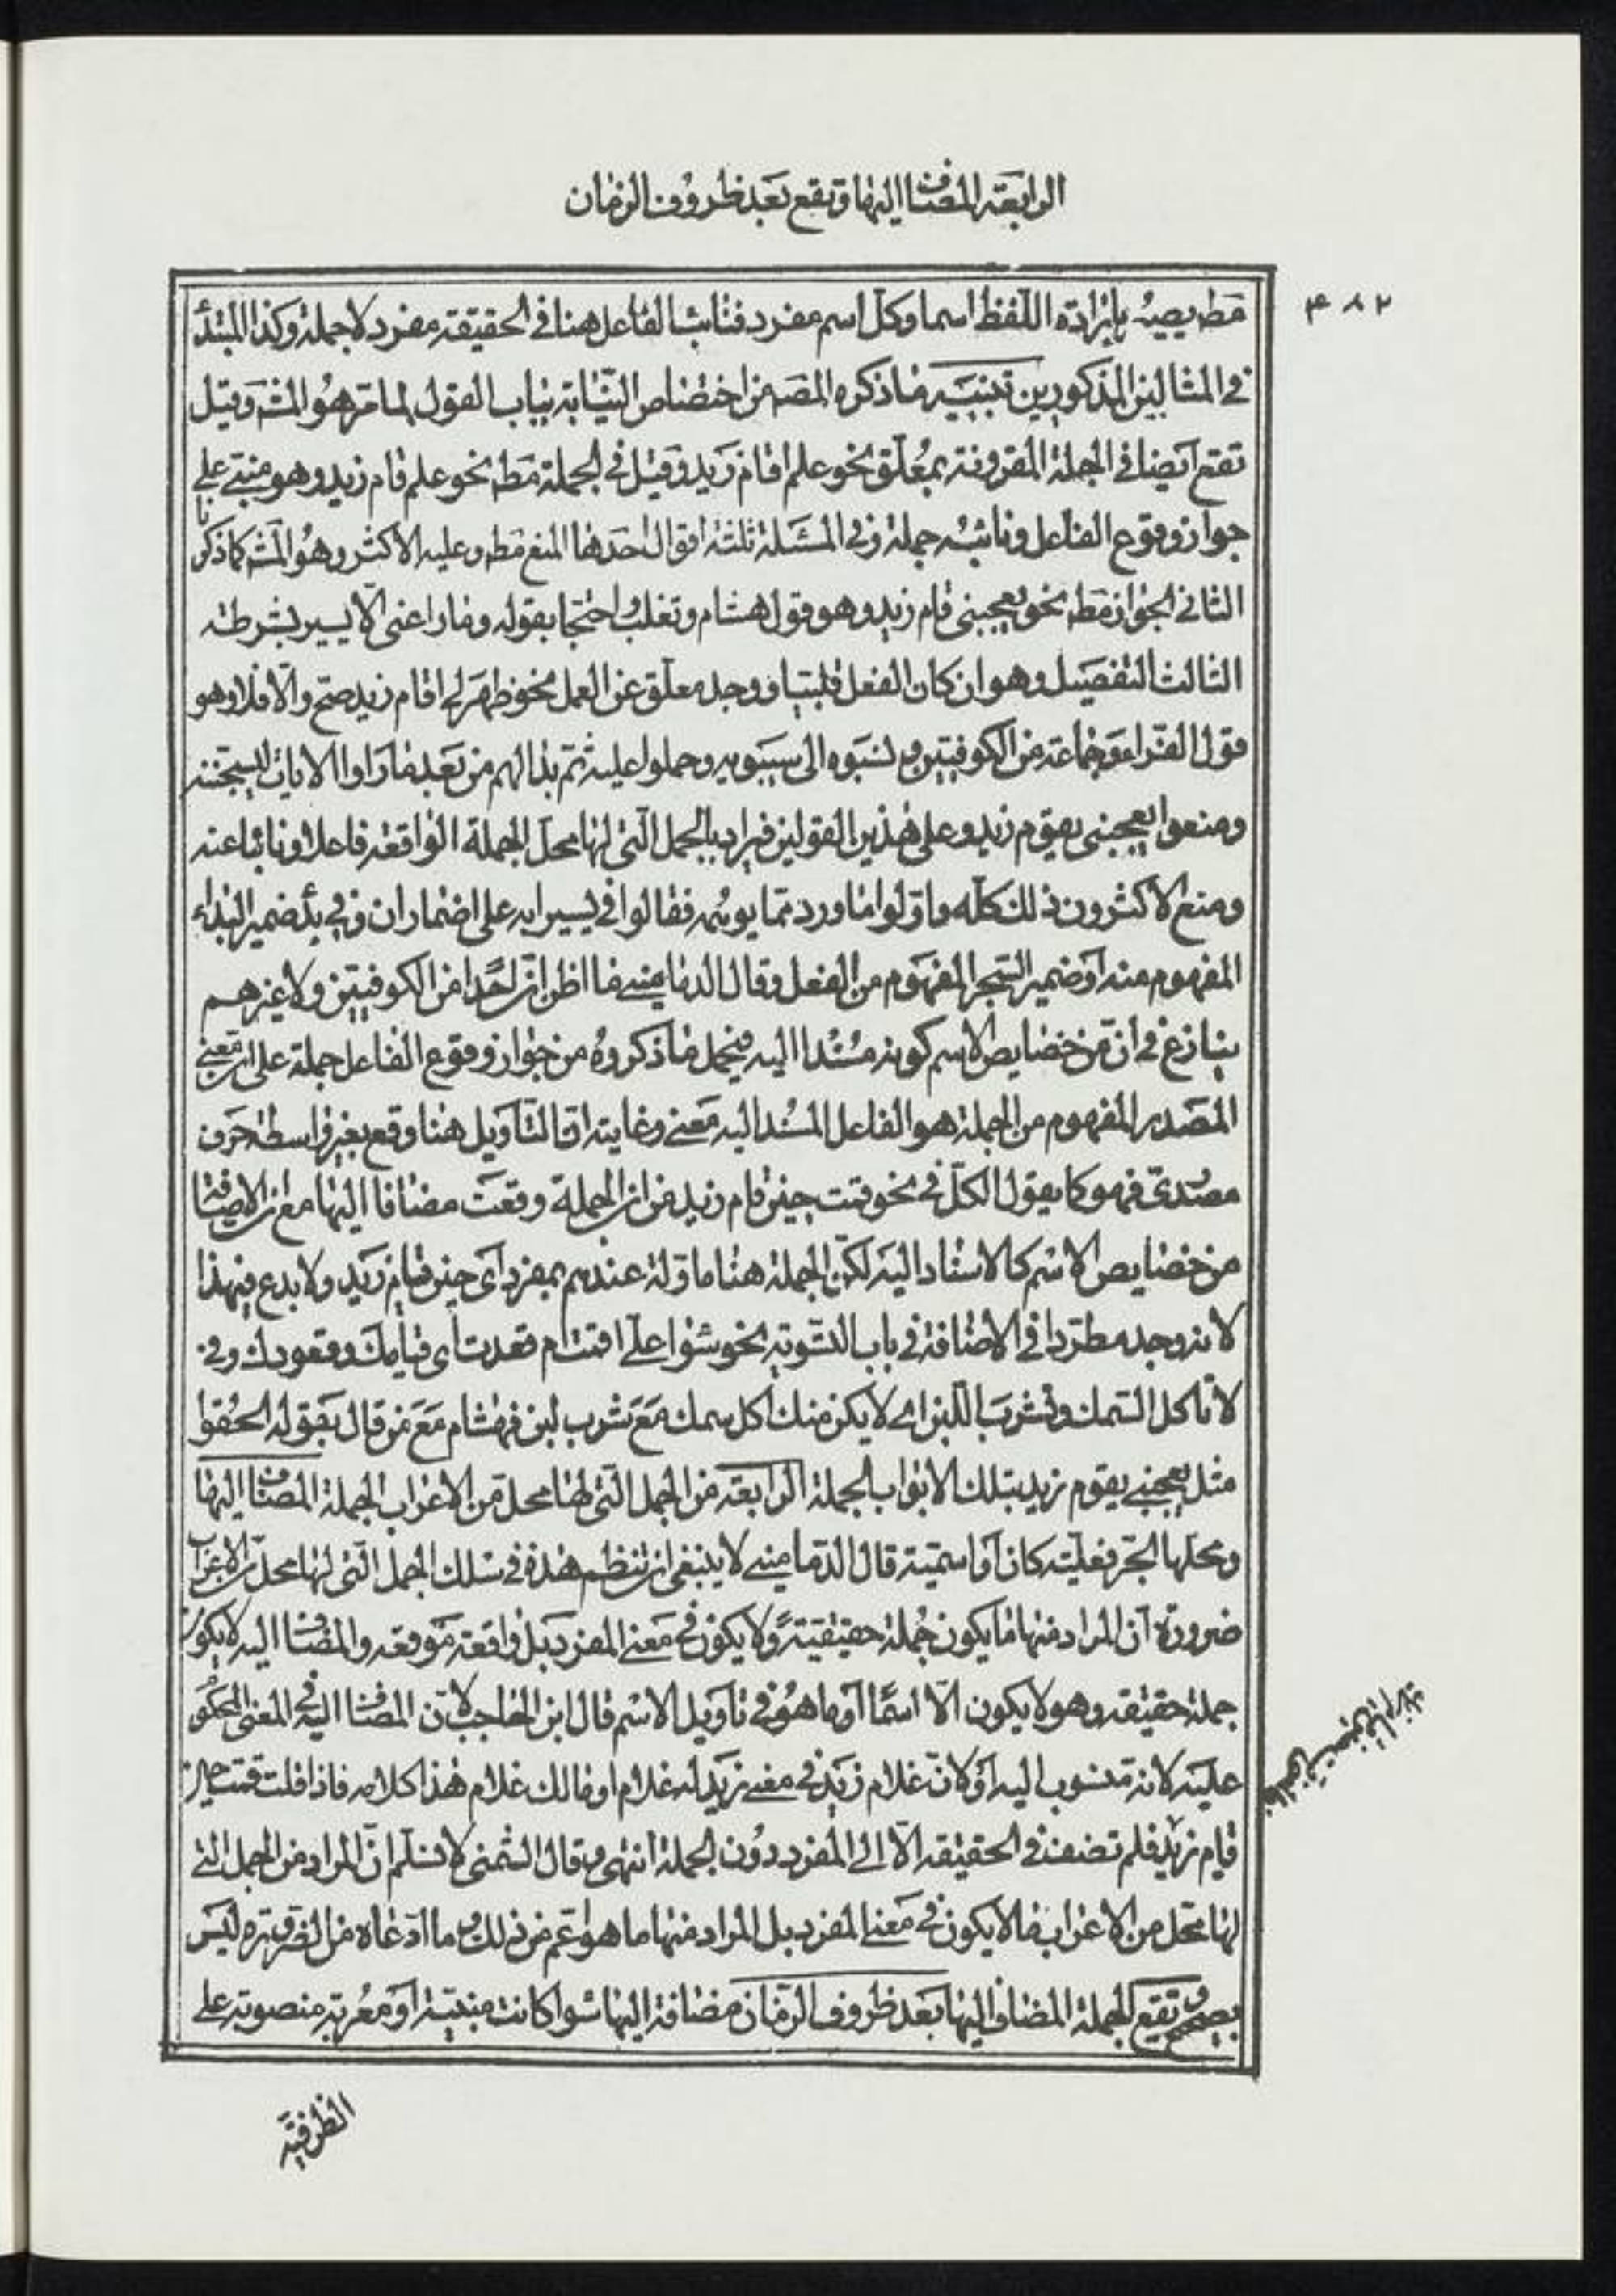 الرابعة المضاف اليها وتقع بعد ظروف الزمان
۴۸۲
قط يصير بإرادة اللفظ اسما وكل اسم مفرد فنائب الفاعل هنا في الحقيقة مفرد لا جملة وكذا المبتدأ
في المثالين المذكورين تنبيه ما ذكره المصه من اختصاص النيابة بباب القول لما مر هو المشه وقيل
تقع أيضا في الجملة المقرونة بمعلق نحو علم اقام زيد وقيل في الجملة مط نحو علم قام زيد وهو مبني على
جواز وقوع الفاعل ونائبه جملة وفي المسئلة ثلثة اقوال احدها المنع مط وعليه الاكثر وهو المشه كما ذكرنا
الثاني الجواز مط نحو يعجبني قام زيد وهو قول هشام وتغلب واحتجا بقوله وما راعني الّا يسير بشرطة
الثالث التفصيل وهو ان كان الفعل قلبيا ووجد معلق عن العمل نحو ظهر لي اقام زيد صح والّا فلا وهو
قول الفراء وجماعة من الكوفيين ونسبوه الى سيبويه وحملوا عليه ثم بدا لهم من بعد ما راوا الايات ليسجننه
ومنعوا يعجبني يقوم زيد وعلى هذين القولين فيراد بالجمل التي لها محل الجملة الواقعة فاعلا ونائبا عنه
ومنع الاكثرون ذلك كله واوّلوا ما ورد مما يوهمه فقالوا في يسير انه على اضمار ان وفي بدا ضمير البداء
المفهوم منه او ضمير السجن المفهوم من الفعل وقال الدماميني ما اظن ان احدا من الكوفيين ولا غيرهم
ينازع في ان من خصايص الاسم كونه مسندا اليه فيحمل ما ذكروه من جواز وقوع الفاعل جملة على ان معنى
المصدر المفهوم من الجملة هو الفاعل المسند اليه معنى وغايته ان التاويل هنا وقع بغير واسطة حرف
مصدري فهو كما يقول الكل في نحو قمت حين قام زيد من ان الجملة وقعت مضافا اليها مع ان الاضافة
من خصايص الاسم كالاسناد اليه لكن الجملة هنا ماوّلة عندهم بمفرد اي حين قيام زيد ولا بدع في هذا
لانه وجد مطردا في الاضافة في باب التسوية نحو سواء علي اقمت ام قعدت اي قيامك وقعودك وفي
لا تاكل السمك وتشرب اللبن اي لا يكن منك اكل سمك مع شرب لبن فهشام مع من قال بقوله الحقوا
مثل يعجبني يقوم زيد بتلك الابواب الجملة الرابعة من الجمل التي لها محل من الاعراب الجملة المضاف اليها
ومحلها الجر فعلية كان او اسمية قال الدماميني لا ينبغي ان تنظم هذه في سلك الجمل التي لها محل من الاعراب
ضرورة ان المراد منها ما يكون جملة حقيقية ولا يكون في معنى المفرد بل واقعة موقعه والمضاف اليه لا يكون
جملة حقيقة وهو لا يكون الّا اسما او ما هو في تاويل الاسم قال ابن الحاجب لان المضاف اليه في المعنى المحكوم
عليه لانه منسوب اليه او لان غلام زيد في معنى زيد له غلام او مالك غلام هذا كلامه فاذا قلت قمت حين
قيام زيد فلم تضف في الحقيقة الّا الى المفرد دون الجملة انتهى وقال الشمني لا نسلم ان المراد من الجمل التي
لها محل من الاعراب ما لا يكون في معنى المفرد بل المراد منها ما هو اعم من ذلك وما ادعاه من الضرورة ليس
بصحيح وتقع الجملة المضاف اليها بعد ظروف الزمان مضافة اليها سوا كانت مبنية او معربة منصوبة على
الظرفية